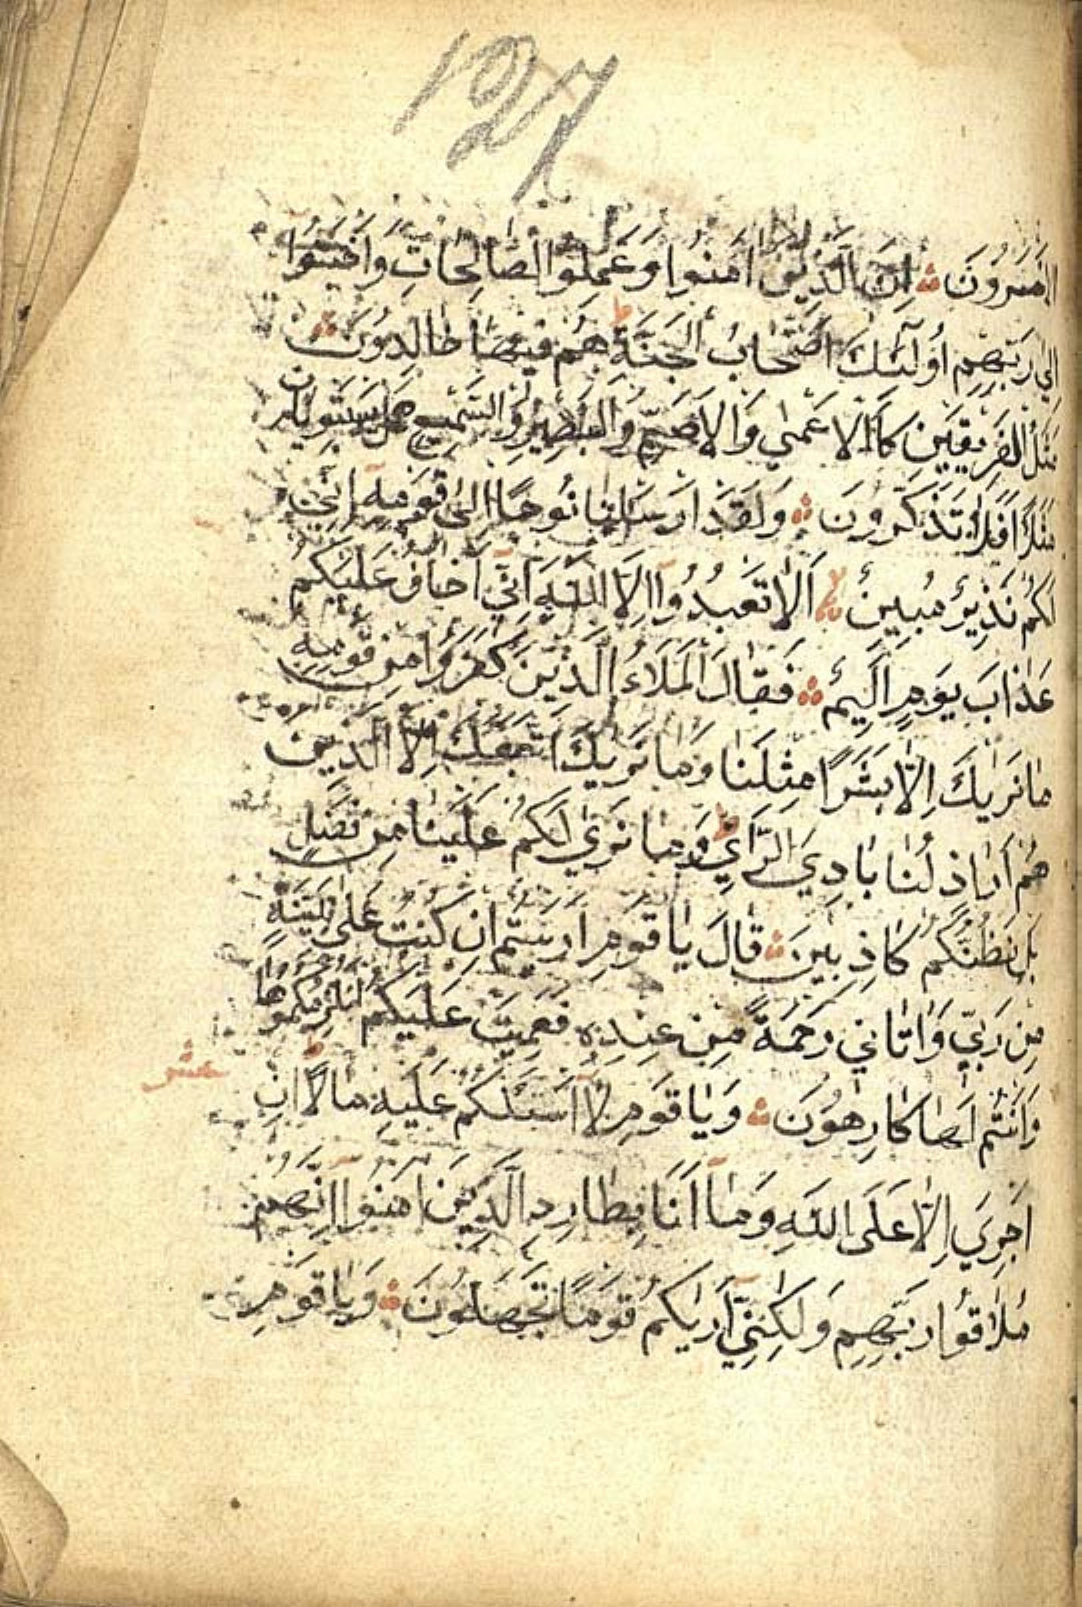 127
الاخسرون ۞ اِنَّ الَّذِينَ اٰمَنُوا وَعَمِلُوا الصَّالِحَاتِ وَاَخْبَتُوا
اِلٰى رَبِّهِمْ اُولٰٓئِكَ اَصْحَابُ الْجَنَّةِ ط هُمْ فِيهَا خَالِدُونَ ۞
مَثَلُ الْفَرِيقَيْنِ كَالْاَعْمٰى وَالْاَصَمِّ وَالْبَصِيرِ وَالسَّمِيعِ هَلْ يَسْتَوِيَانِ
مَثَلًا اَفَلَا تَذَكَّرُونَ ۞ وَلَقَدْ اَرْسَلْنَا نُوحًا اِلٰى قَوْمِهِ اِنِّي
لَكُمْ نَذِيرٌ مُبِينٌ لا اَلَّا تَعْبُدُوا اِلَّا اللّٰهَ اِنِّي اَخَافُ عَلَيْكُمْ
عَذَابَ يَوْمٍ اَلِيمٍ ۞ فَقَالَ الْمَلَاُ الَّذِينَ كَفَرُوا مِنْ قَوْمِهِ
مَا نَرٰيكَ اِلَّا بَشَرًا مِثْلَنَا وَمَا نَرٰيكَ اتَّبَعَكَ اِلَّا الَّذِينَ
هُمْ اَرَاذِلُنَا بَادِيَ الرَّأْيِ ط وَمَا نَرٰى لَكُمْ عَلَيْنَا مِنْ فَضْلٍ
بَلْ نَظُنُّكُمْ كَاذِبِينَ ۞ قَالَ يَا قَوْمِ اَرَءَيْتُمْ اِنْ كُنْتُ عَلٰى بَيِّنَةٍ
مِنْ رَبِّي وَاٰتَانِي رَحْمَةً مِنْ عِنْدِهِ فَعُمِّيَتْ عَلَيْكُمْ اَنُلْزِمُكُمُوهَا
وَاَنْتُمْ لَهَا كَارِهُونَ ۞ وَيَا قَوْمِ لَا اَسْئَلُكُمْ عَلَيْهِ مَالًا اِنْ
عشر
اَجْرِيَ اِلَّا عَلَى اللّٰهِ وَمَا اَنَا بِطَارِدِ الَّذِينَ اٰمَنُوا اِنَّهُمْ
مُلَاقُوا رَبِّهِمْ وَلٰكِنِّي اَرٰيكُمْ قَوْمًا تَجْهَلُونَ ۞ وَيَا قَوْمِ